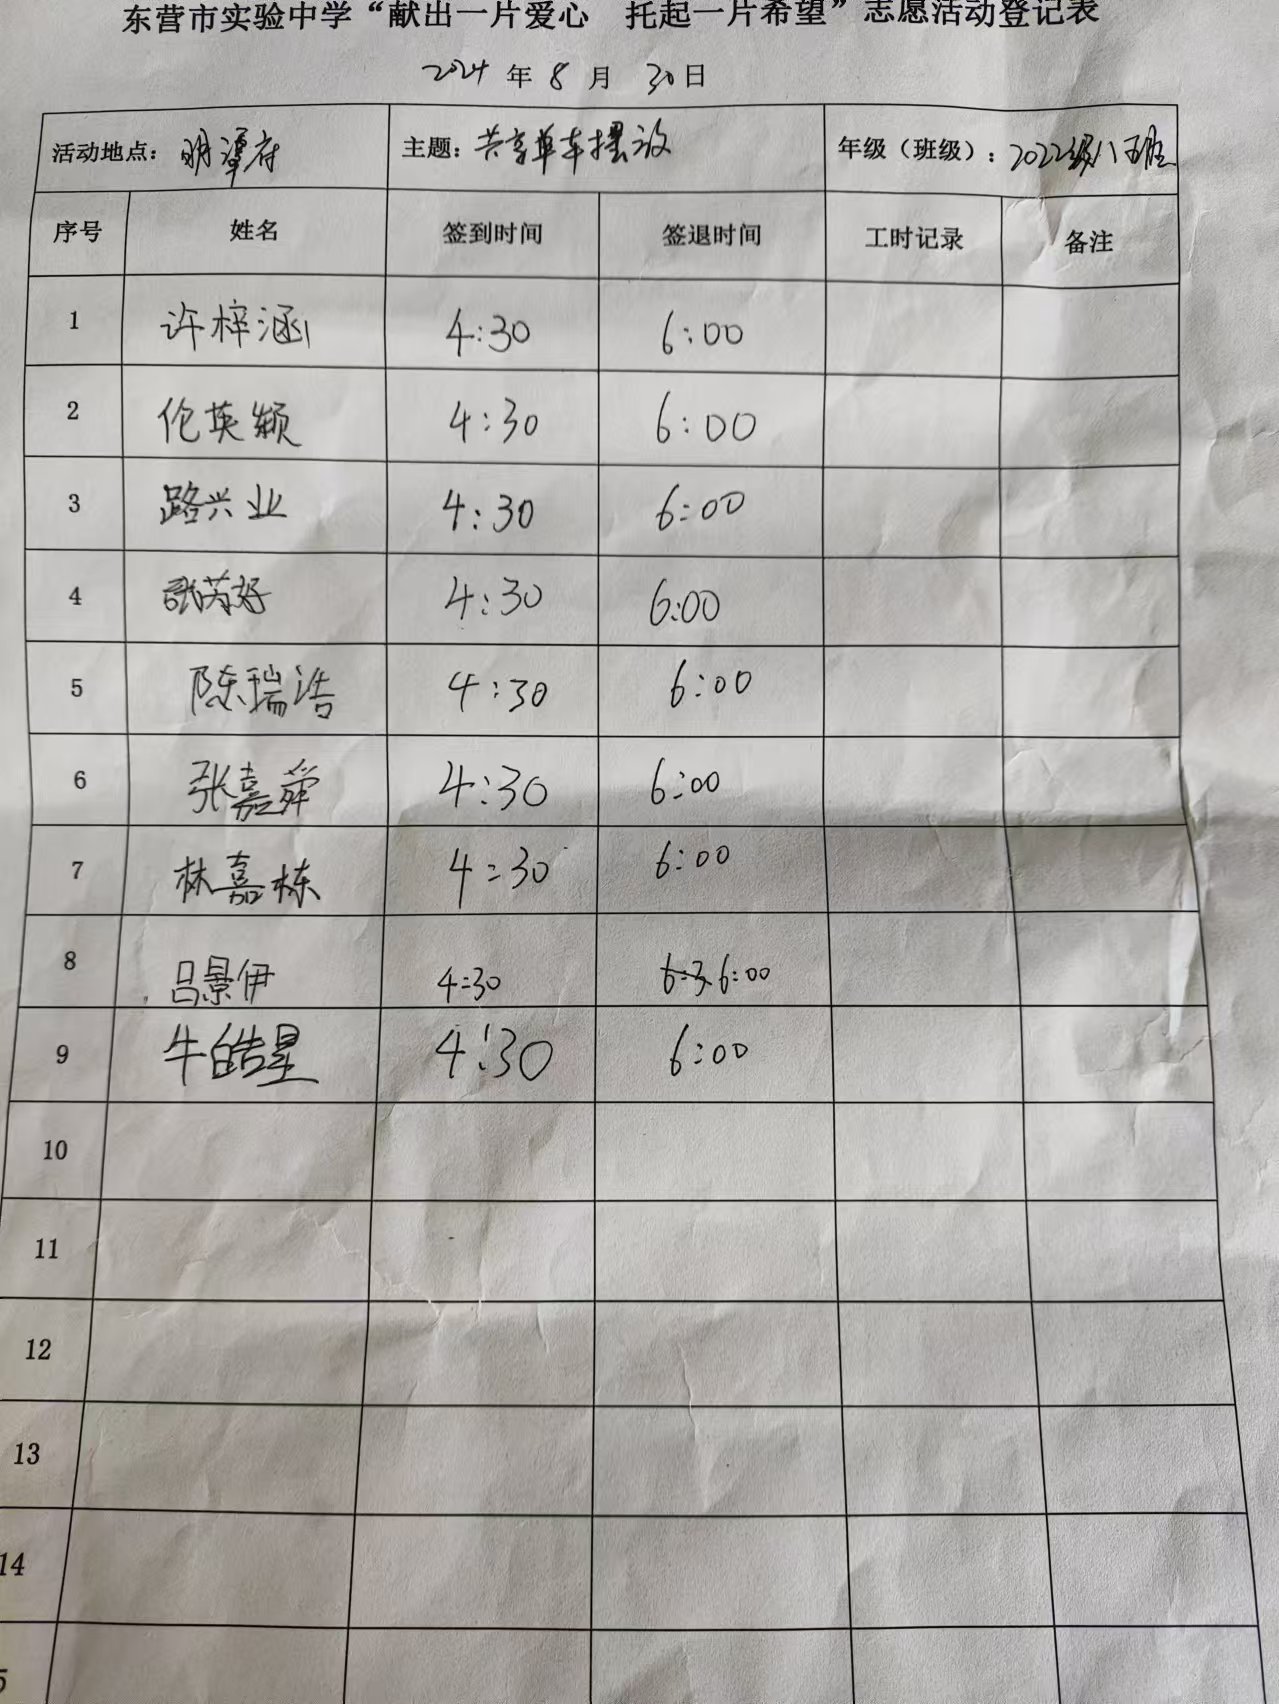 东营市实验中学“献出一片爱心 托起一片希望”志愿活动登记表
2024年8月30日
活动地点：明潭府 主题：共享单车摆放 年级（班级）：2022级八五班
序号 姓名 签到时间 签退时间 工时记录 备注
1 许梓涵 4:30 6:00
2 伦英颖 4:30 6:00
3 路兴业 4:30 6:00
4 张芮好 4:30 6:00
5 陈瑞浩 4:30 6:00
6 张嘉舜 4:30 6:00
7 林嘉栋 4:30 6:00
8 吕景伊 4:30 6:3 6:00
9 牛皓星 4:30 6:00
10
11
12
13
14
5